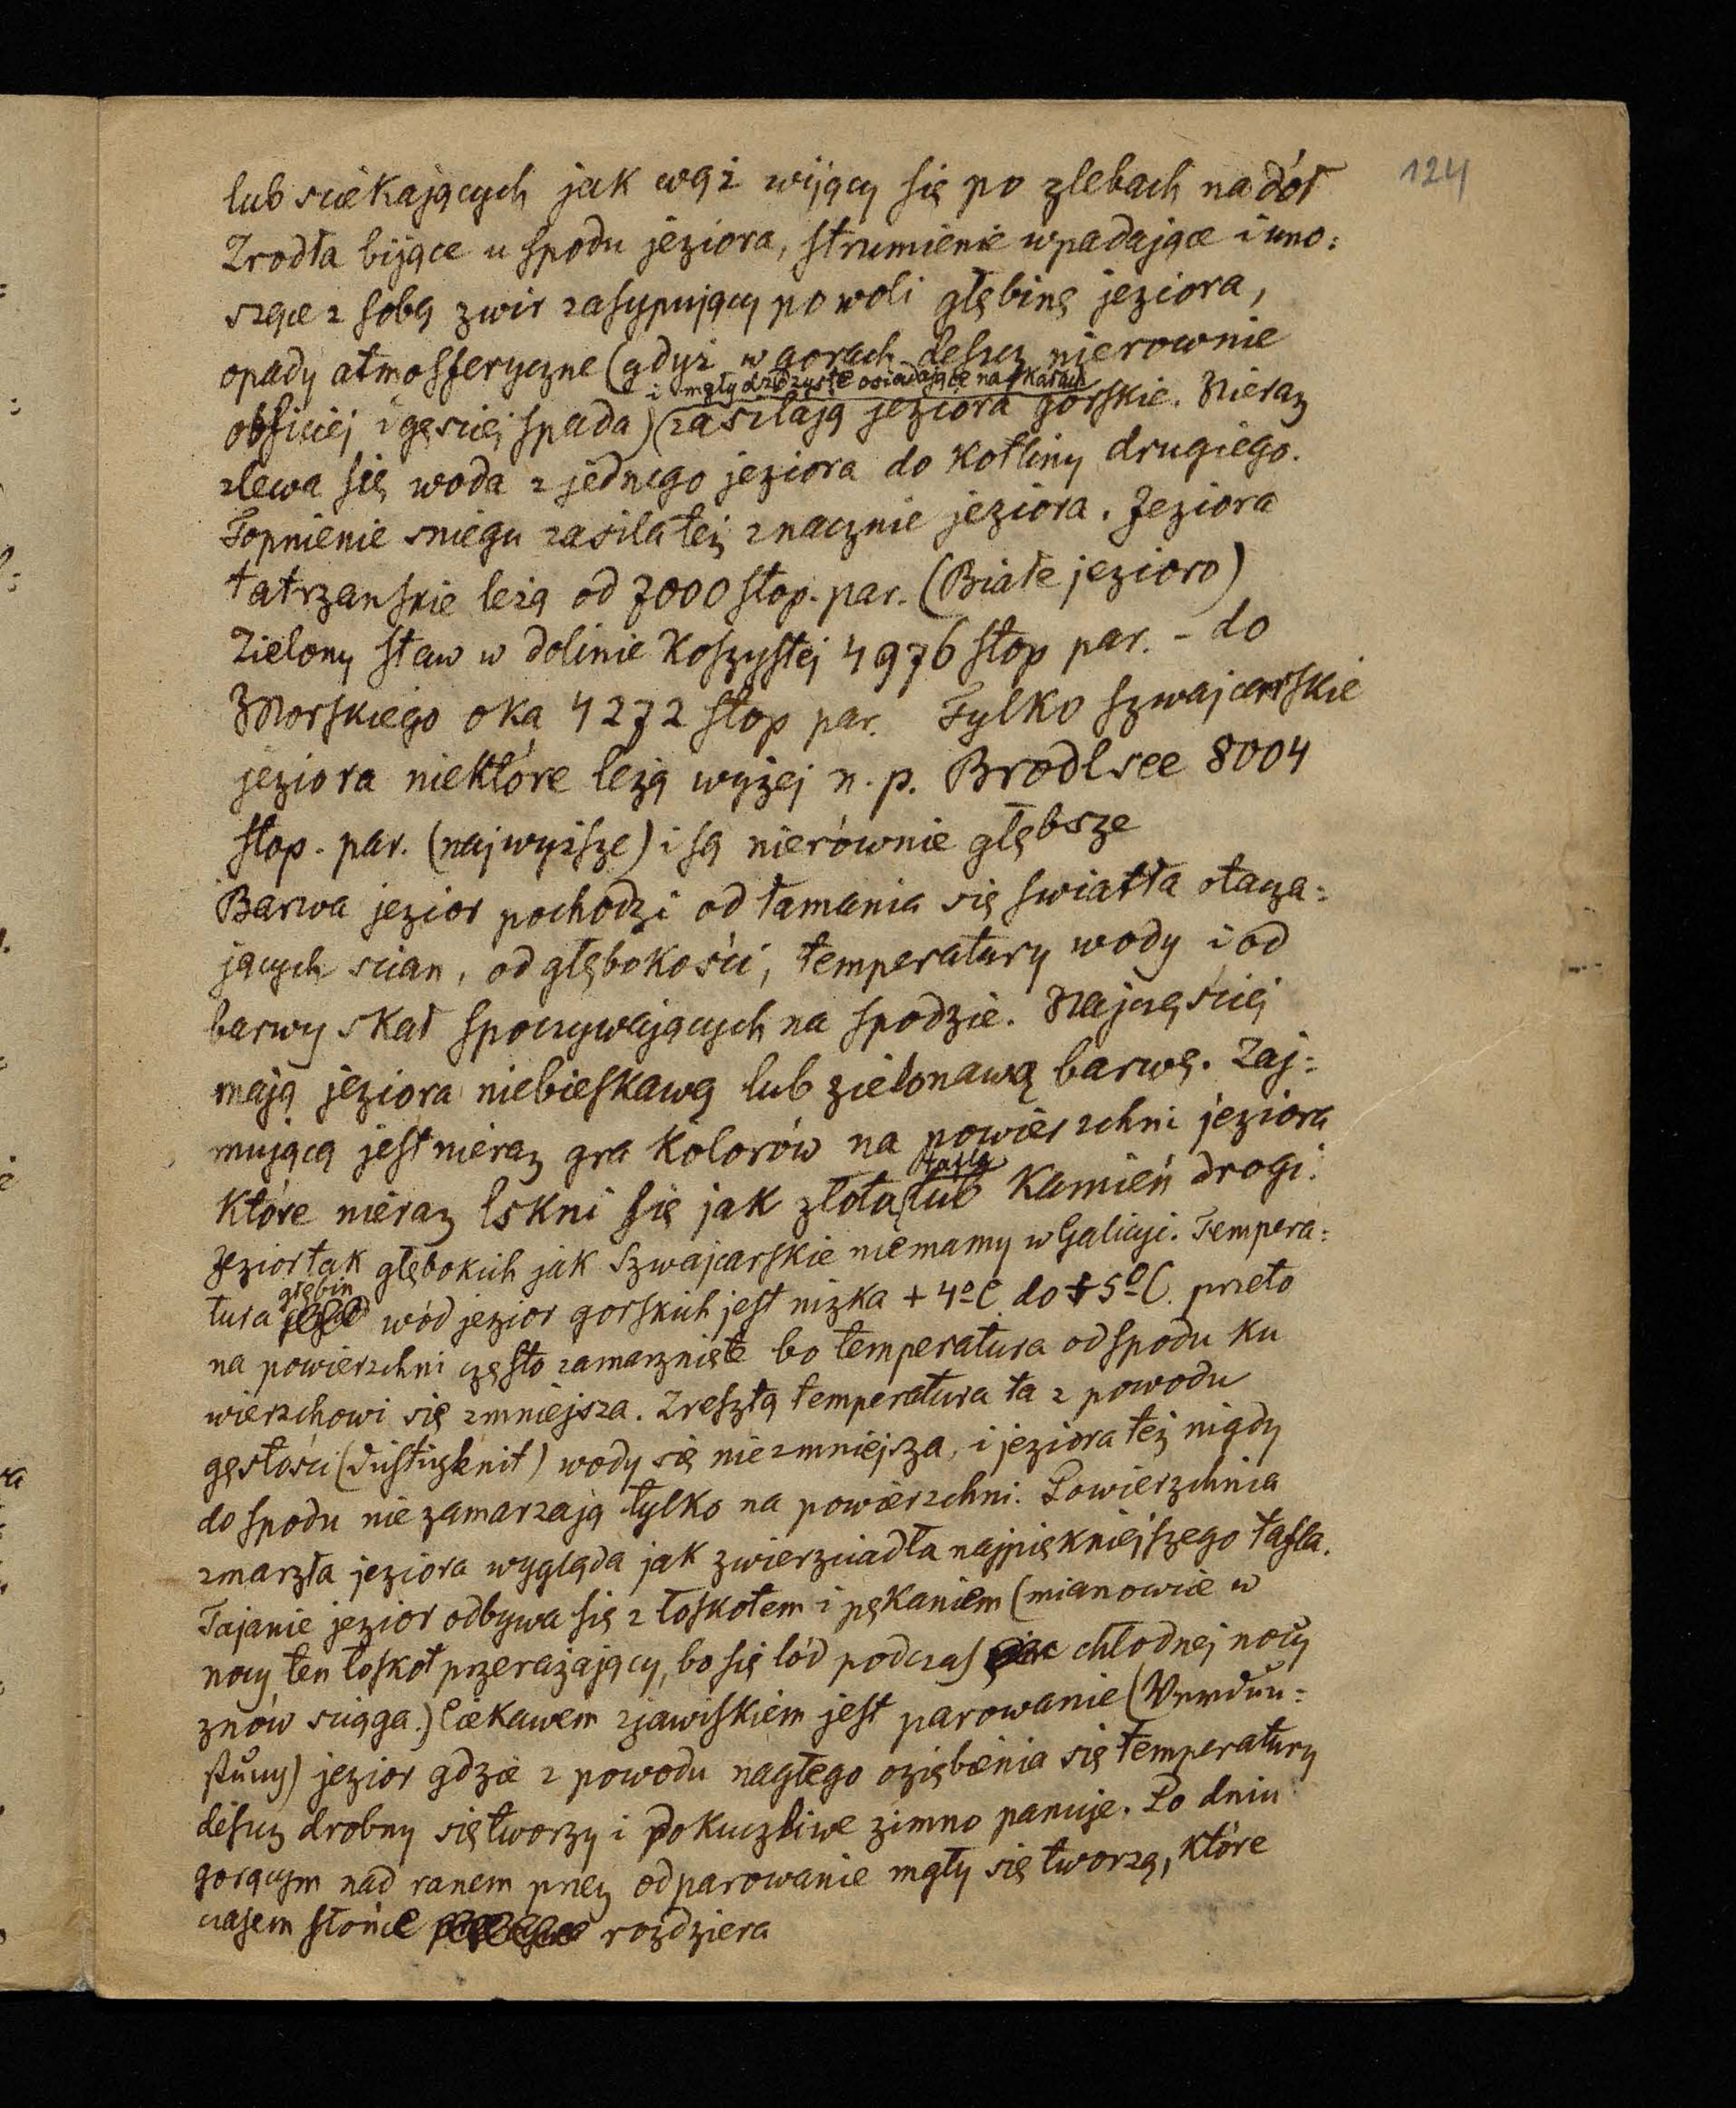 124
lub sciekających jak wąż wijący się po zlebach na dół
Zrodła bijące u spodu jeziora, strumienie wpadające i uno=
szące z sobą zwir zasypujący powoli głębinę jeziora,
opady atmosferyczne (gdyż w gorach deszcz nierownie
i mgły dżdżyste osiadające na skałach
obficiej i gęsciej spada) zasilają jeziora górskie. Nieraz
zlewa się woda z jednego jeziora do kotliny drugiego.
Topnienie sniegu zasila też znacznie jeziora. Jeziora
tatrzanskie leżą od 7000 stop. par. (Białe jezioro)
Zielony staw w dolinie Koszystej 4976 stop par. - do
Morskiego oka 4272 stop par. Tylko szwajcarskie
jeziora niektóre leżą wyżej n. p. Brodlsee 8004
stop. par. (najwyższe) i są nierównie głębsze
Barwa jezior pochodzi od łamania się swiatła otacza=
jących scian, od głębokości, temperatury wody i od
barwy skał spoczywających na spodzie. Najczęsciej
mają jeziora niebieskawą lub zielonawą barwę. Zaj=
mującą jest nieraz gra kolorów na powierzchni jeziora
tafla
które nieraz lskni się jak złota lub kamień drogi.
Jezior tak głębokich jak szwajcarskie nie mamy w Galicyi. Tempera=
głębin
tura wód jezior gorskich jest nizka + 4º C do + 5º C. przeto
na powierzchni często zamarznięte bo temperatura od spodu ku
wierzchowi się zmniejsza. Zresztą temperatura ta z powodu
gęstości (Dichtigkeit) wody się nie zmniejsza, i jeziora też nigdy
do spodu nie zamarzają tylko na powierzchni. Powierzchnia
zmarzła jeziora wygląda jak zwierzciadła najpiękniejszego tafla.
Tajanie jezior odbywa się z łoskotem i pękaniem (mianowie w
nocy ten łoskot przerażający, bo się lód podczas chłodnej nocy
znów sciąga.) Ciekawem zjawiskiem jest parowanie (Verdun=
stung) jezior gdzie z powodu nagłego oziębienia się temperatury
deszcz drobny się tworzy i dokuczliwe zimno panuje. Po dniu
gorącym nad ranem przez odparowanie mgły się tworzą, które
czasem słońce rozdziera